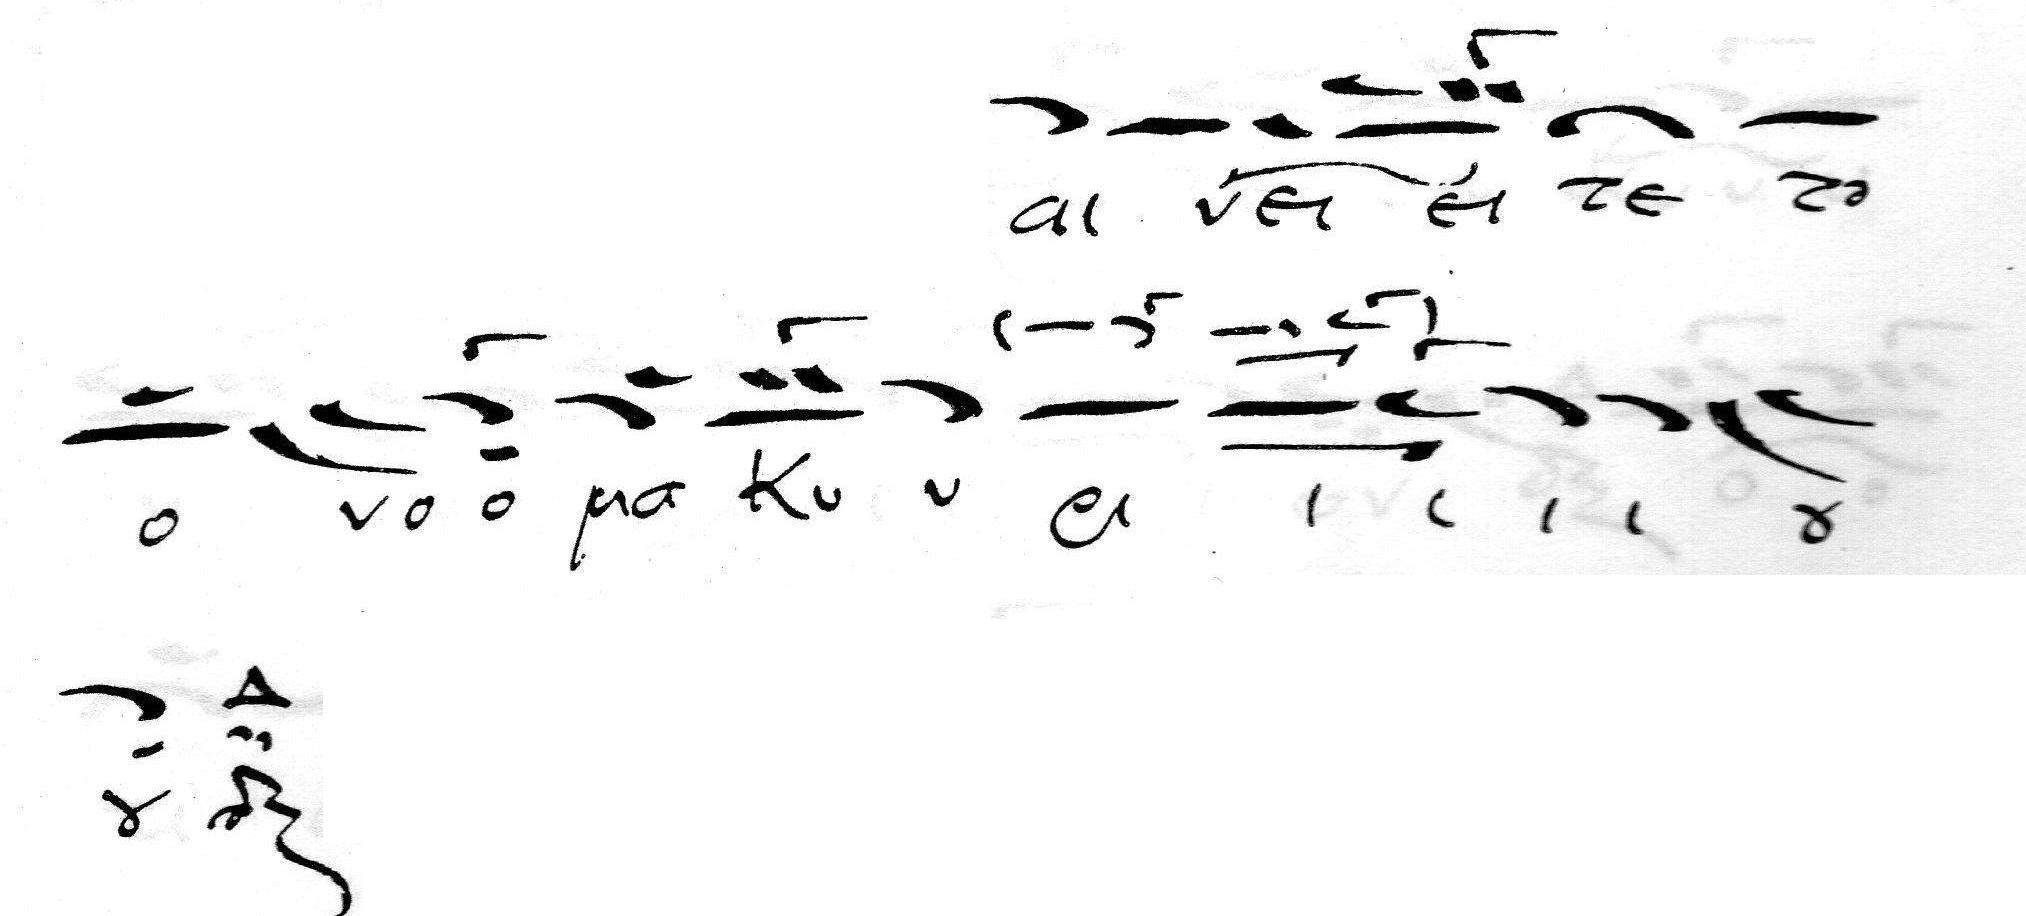 αι νει ει τε το
ο νο ο μα Κυ υ ρι ι ι ι ι ȣ
ȣ Δ